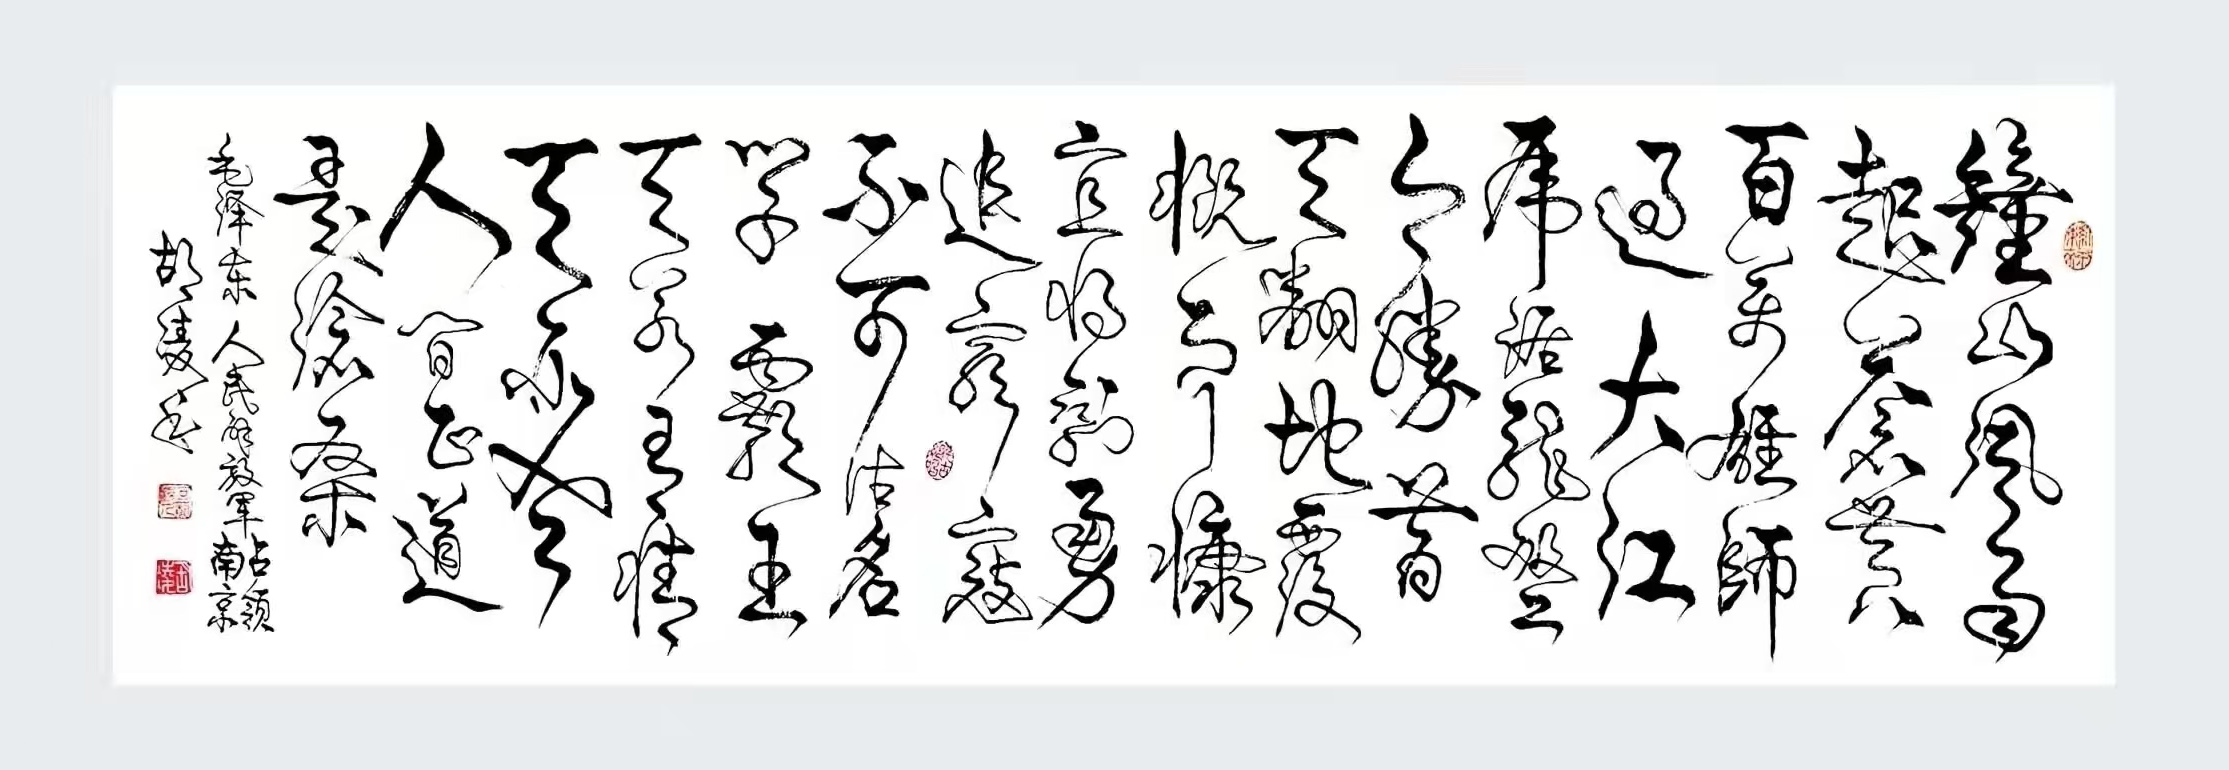 鐘山風雨
起蒼黄
百萬雄師
過大江
虎踞龍盤
今勝昔
天翻地覆
慨而慷
宜將剩勇
追窮寇
不可沽名
學霸王
天若有情
天亦老
人間正道
是滄桑
毛泽东 人民解放军占領南京
胡